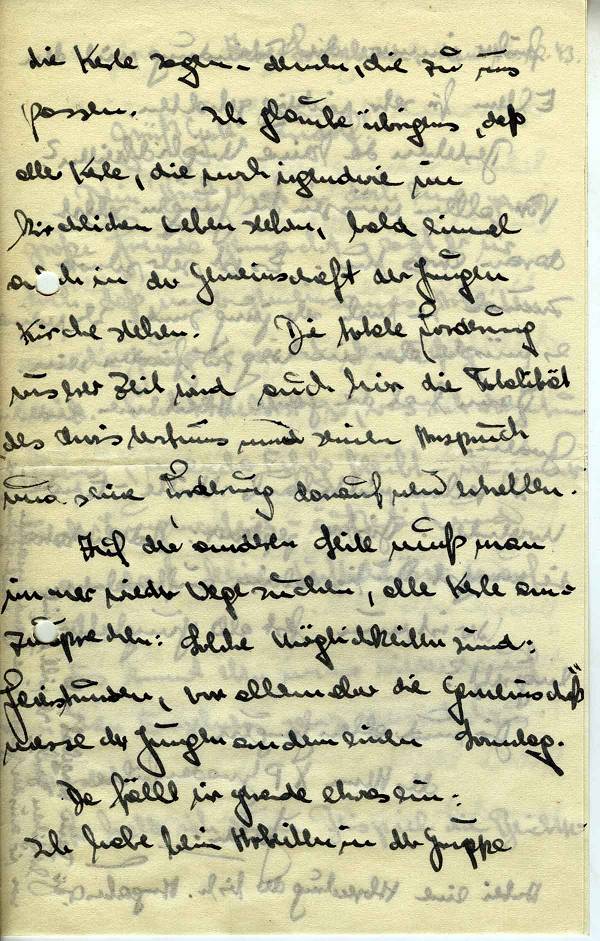 die Kerle sagen - denen, die zu uns
passen. Ich glaube übrigens, daß
alle Kerle, die noch irgendwie im
kirchlichen Leben stehen, bald einmal
auch in der Gemeinschaft der Jungen
Kirche stehen. Die totale Forderung
unserer Zeit wird auch hier die Totalität
des Christentums und seinen Anspruch
und seine Forderung darauf
Auf der anderen Seite muß man
immer wieder Wege suchen, alle Kerle an-
zusprechen: Solche Möglichkeiten sind:
Feierstunden, vor allem aber die Gemeinschafts
messe der Jungen an dem einen Sonntag.
Da fällt mir gerade etwas ein:
Ich habe beim Arbeiten in der Gruppe